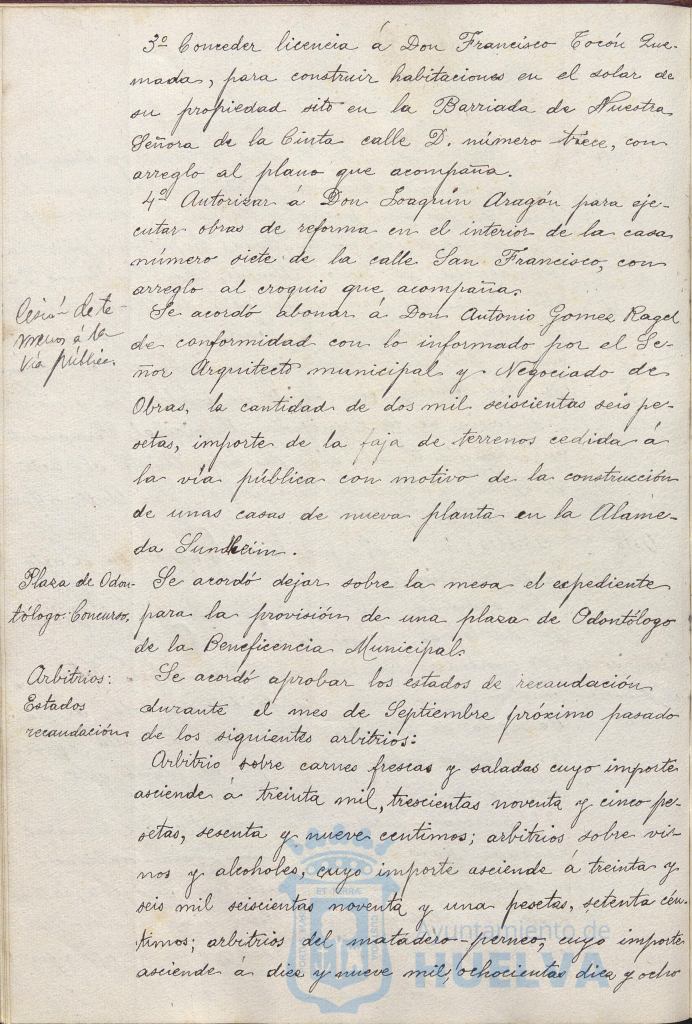 3º Conceder licencia á Don Francisco Tocón Que-
mada, para construir habitaciones en el solar de
su propiedad sito en la Barriada de Nuestra
Señora de la Cinta calle D. número trece, con
arreglo al plano que acompaña.
4º Autorizar á Don Joaquín Aragón para eje-
cutar obras de reforma en el interior de la casa
número siete de la calle San Francisco, con
arreglo al croquis que acompaña.
Cesión de te-
rrenos á la
vía pública.
Se acordó abonar á Don Antonio Gomez Ragel
de conformidad con lo informado por el Se-
ñor Arquitecto municipal y Negociado de
Obras, la cantidad de dos mil seiscientas seis pe-
setas, importe de la faja de terrenos cedida á
la vía pública con motivo de la construcción
de unas casas de nueva planta en la Alame-
da Sundheim.
Plaza de Odon-
tólogo: Concurso.
Se acordó dejar sobre la mesa el expediente
para la provisión de una plaza de Odontólogo
de la Beneficencia Municipal.
Arbitrios:
Estados
recaudación
Se acordó aprobar los estados de recaudación
durante el mes de Septiembre próximo pasado
de los siguientes arbitrios:
Arbitrio sobre carnes frescas y saladas cuyo importe
asciende á treinta mil, trescientas noventa y cinco pe-
setas, sesenta y nueve centimos; arbitrios sobre vi-
nos y alcoholes, cuyo importe asciende á treinta y
seis mil seiscientas noventa y una pesetas, setenta cén-
timos; arbitrios del matadero-perneo, cuyo importe
asciende á diez y nueve mil, ochocientas diez y ocho
Ayuntamiento de
HUELVA